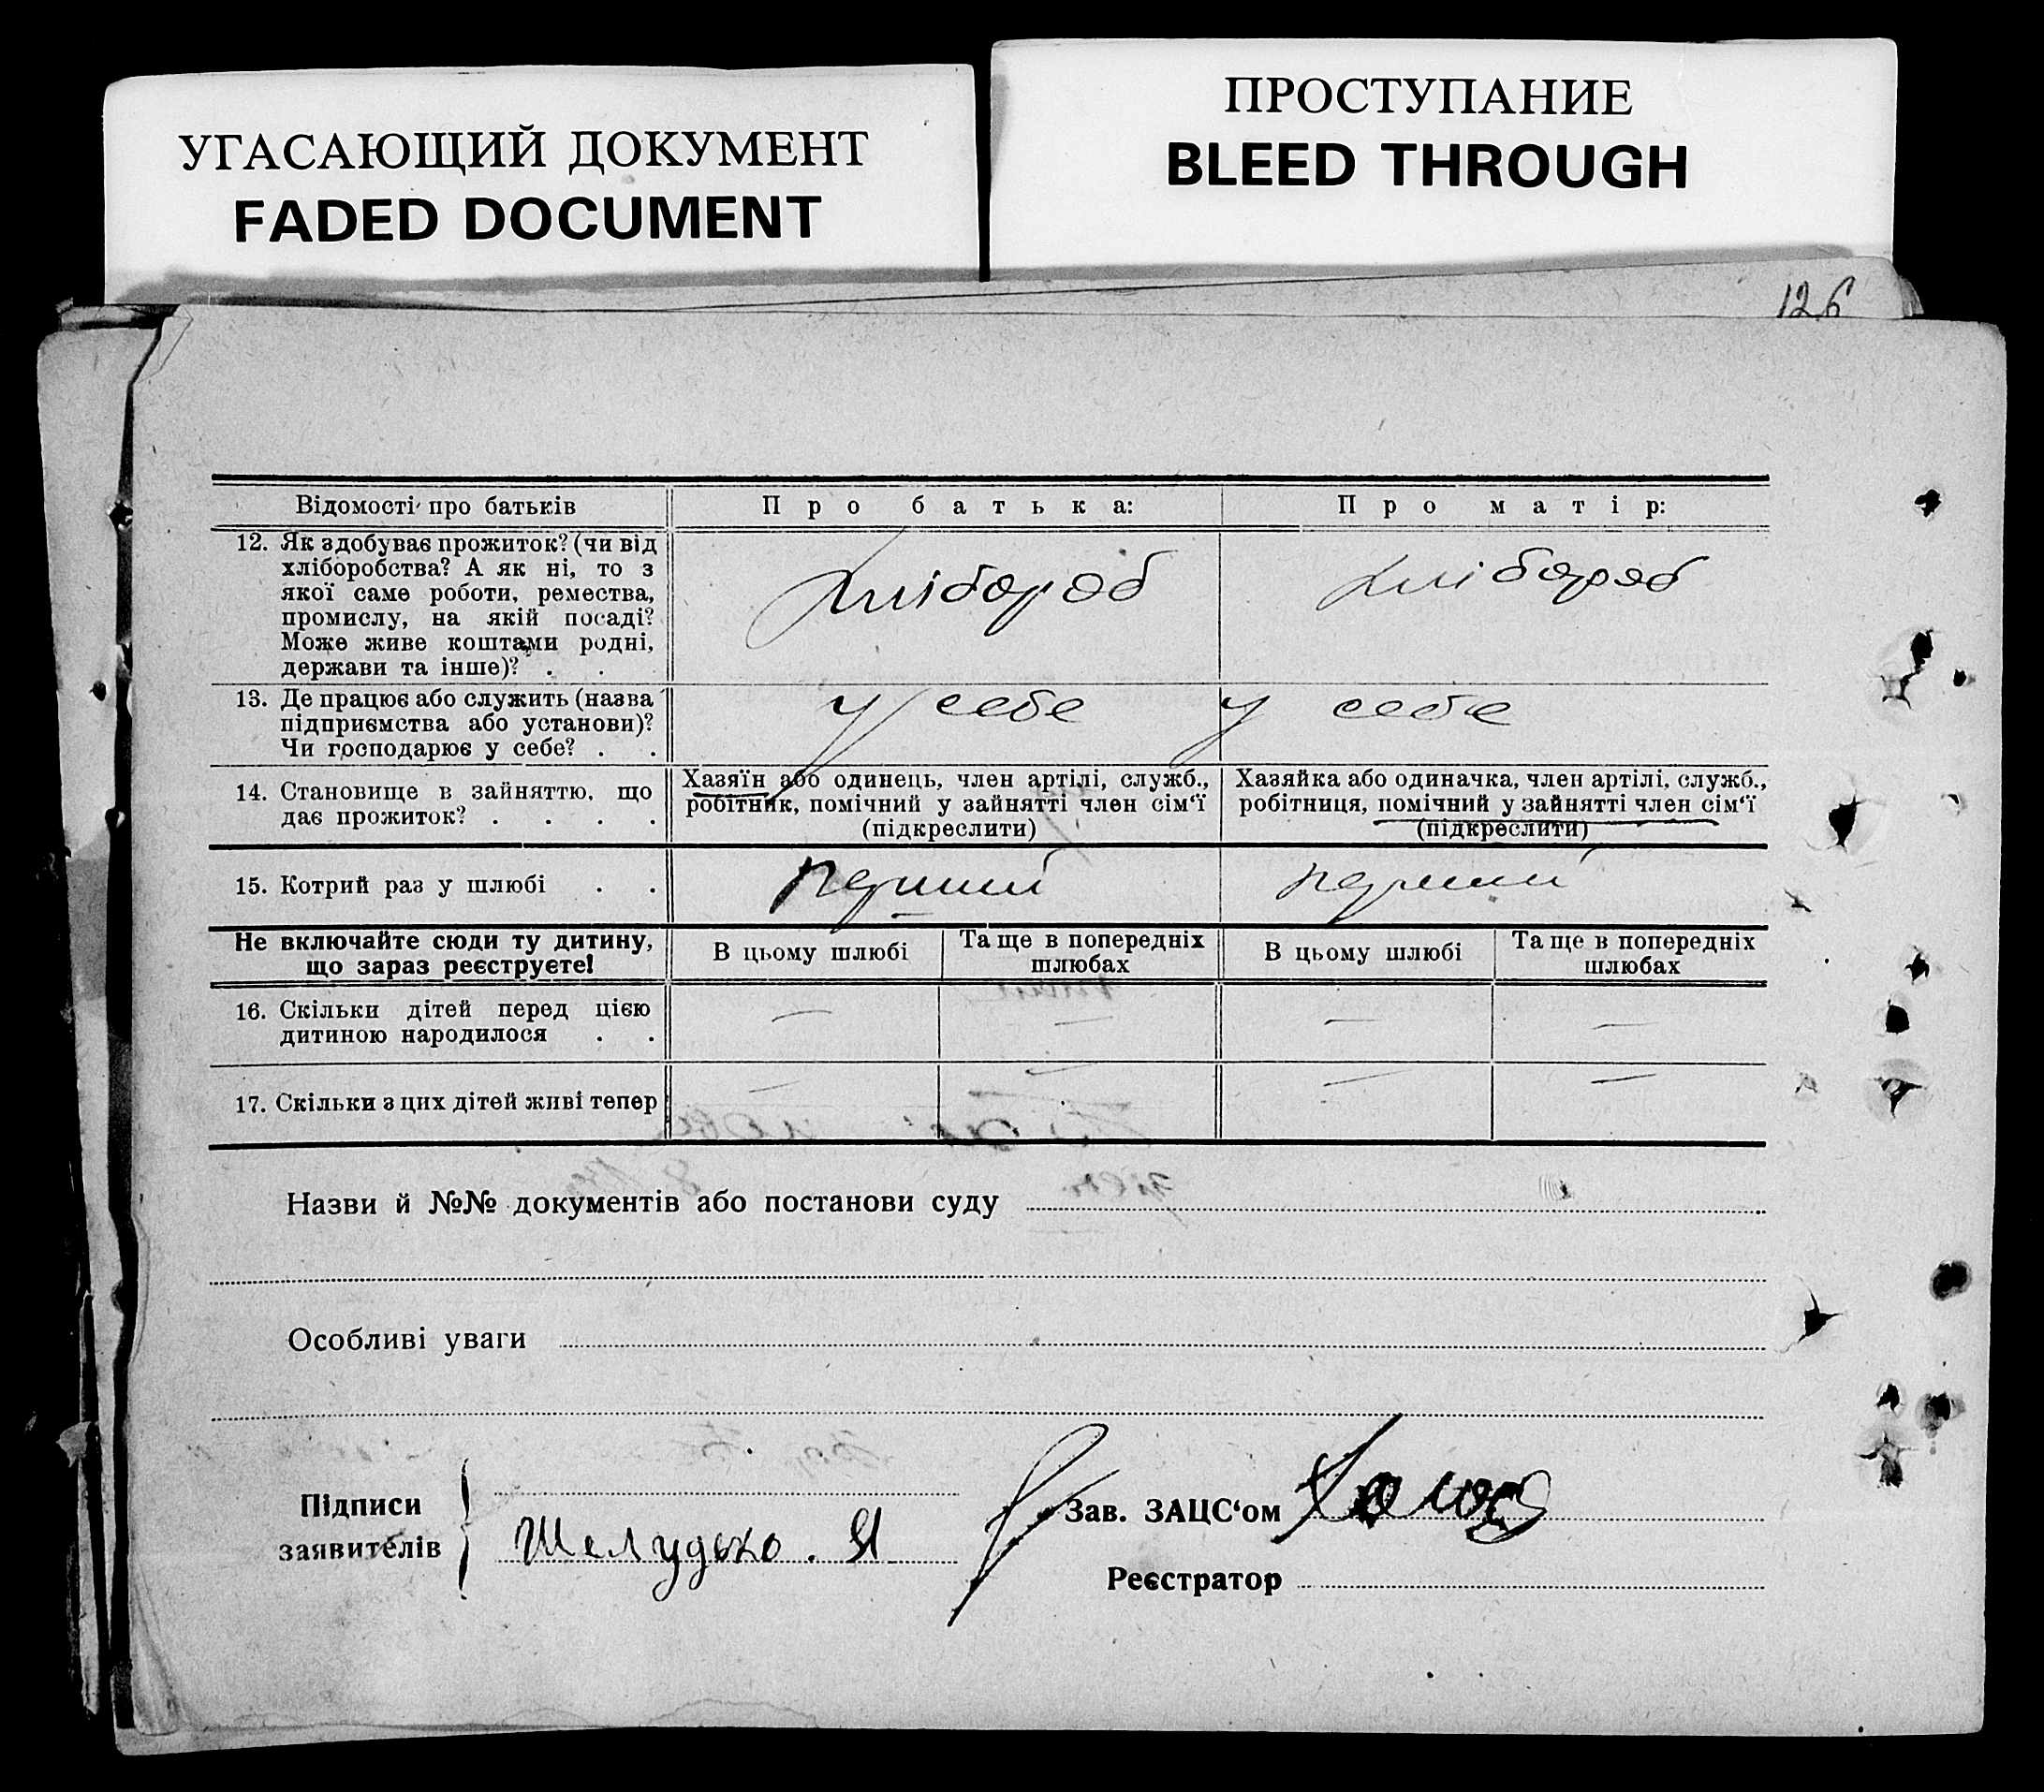 УГАСАЮЩИЙ ДОКУМЕНТ
FADED DOCUMENT
ПРОСТУПАНИЕ
BLEED THROUGH
126
Відомості про батьків
П р о б а т ь к а:
П р о м а т і р:
12. Як здобуває прожиток? (чи від
хліборобства? А як ні, то з
якої саме роботи, ремества,
промислу, на якій посаді?
Може живе коштами родні,
держави та інше)? . .
Хлібороб
Хлібороб
13. Де працює або служить (назва
підприємства або установи)?
Чи господарює у себе? . .
у себе
у себе
14. Становище в зайняттю, що
дає прожиток? . . . .
Хазяїн або одинець, член артілі, служб.,
робітник, помічний у зайнятті член сім‘ї
(підкреслити)
Хазяйка або одиначка, член артілі, служб.,
робітниця, помічний у зайнятті член сім‘ї
(підкреслити)
15. Котрий раз у шлюбі . .
перший
перший
Не включайте сюди ту дитину,
що зараз реєструєте!
В цьому шлюбі
Та ще в попередніх
шлюбах
В цьому шлюбі
Та ще в попередніх
шлюбах
16. Скільки дітей перед цією
дитиною народилося . .
— — — —
17. Скільки з цих дітей живі тепер
— — — —
Назви й №№ документів або постанови суду
Особливі уваги
Підписи
заявителів
Шелудько. Я
Зав. ЗАЦС‘ом
Реєстратор